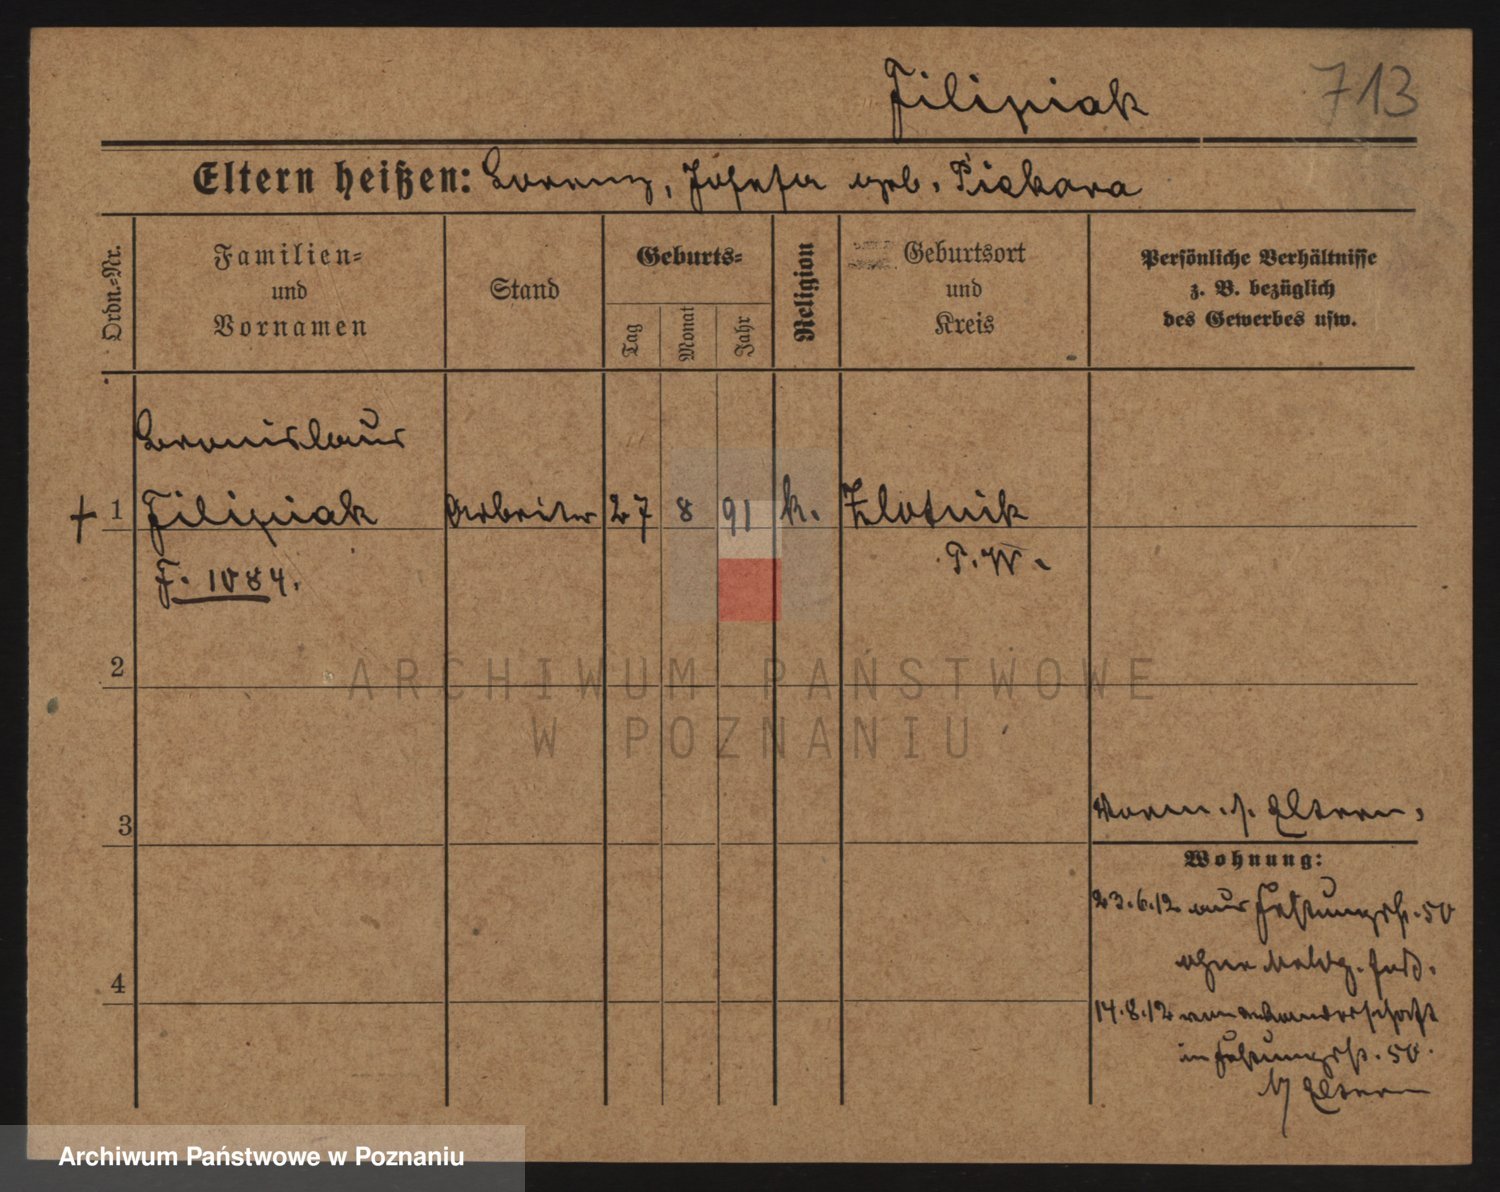 Filipiak 713
Eltern heißen: Lorenz, Josefa geb. Piekara
Ordn.-Nr.
Familien-
und
Vornamen
Stand
Geburts-
Tag
Monat
Jahr
Religion
Geburtsort
und
Kreis
Persönliche Verhältnisse
z. B. bezüglich
des Gewerbes usw.
Bronislaus
+ 1 Filipiak Arbeiter 27 8 91 k. Zlotnik
F. 1084. P. W.
2
ARCHIWUM PAŃSTWOWE
W POZNANIU
3
Eltern.
Wohnung:
23.6.12 aus Festungsstr. 50
ohne Meldg. fort.
14.8.12 von Wanderschaft
in Festungsstr. 50.
b/ Eltern
4
Archiwum Państwowe w Poznaniu